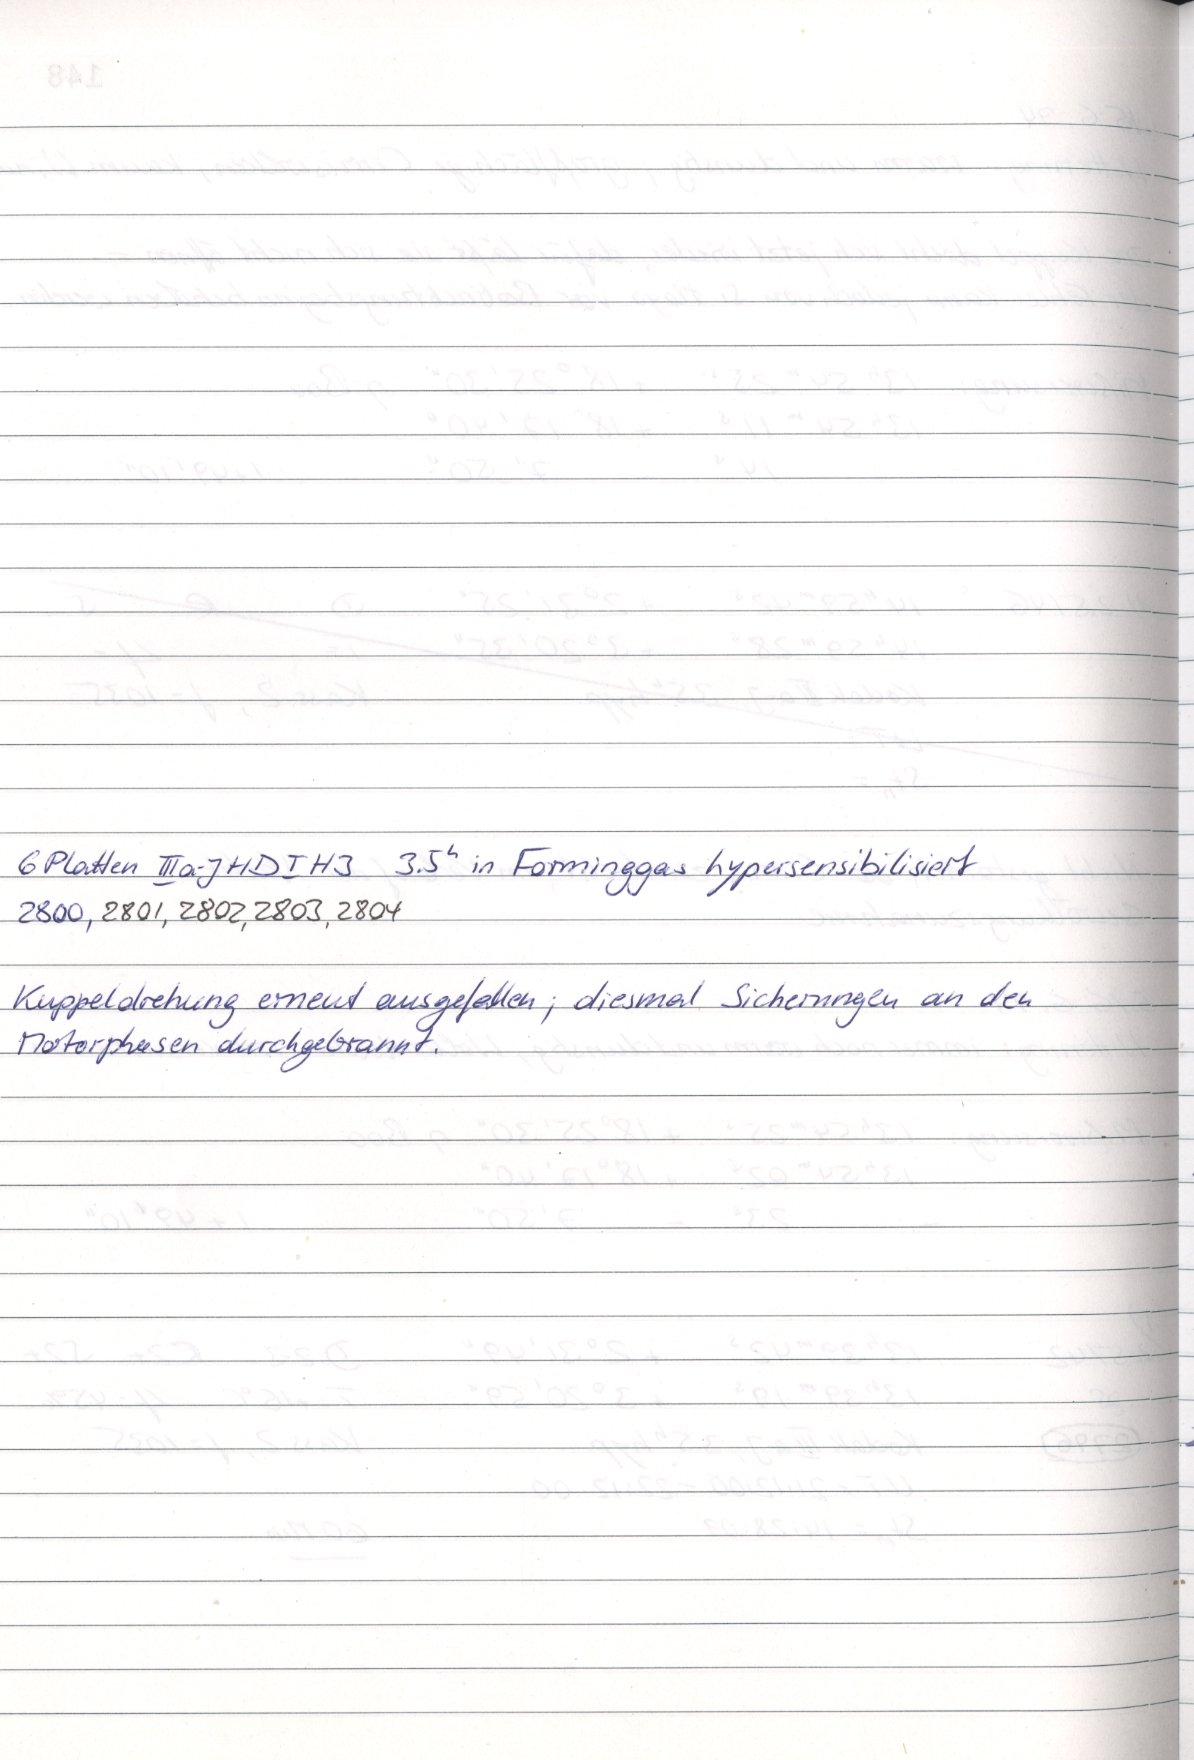 6 Platten IIIa-J HD I H3 3.5ʰ in Forminggas hypersensibilisiert
2800, 2801, 2802, 2803, 2804
Kuppeldrehung erneut ausgefallen; diesmal Sicherungen an den
Motorphasen durchgebrannt.